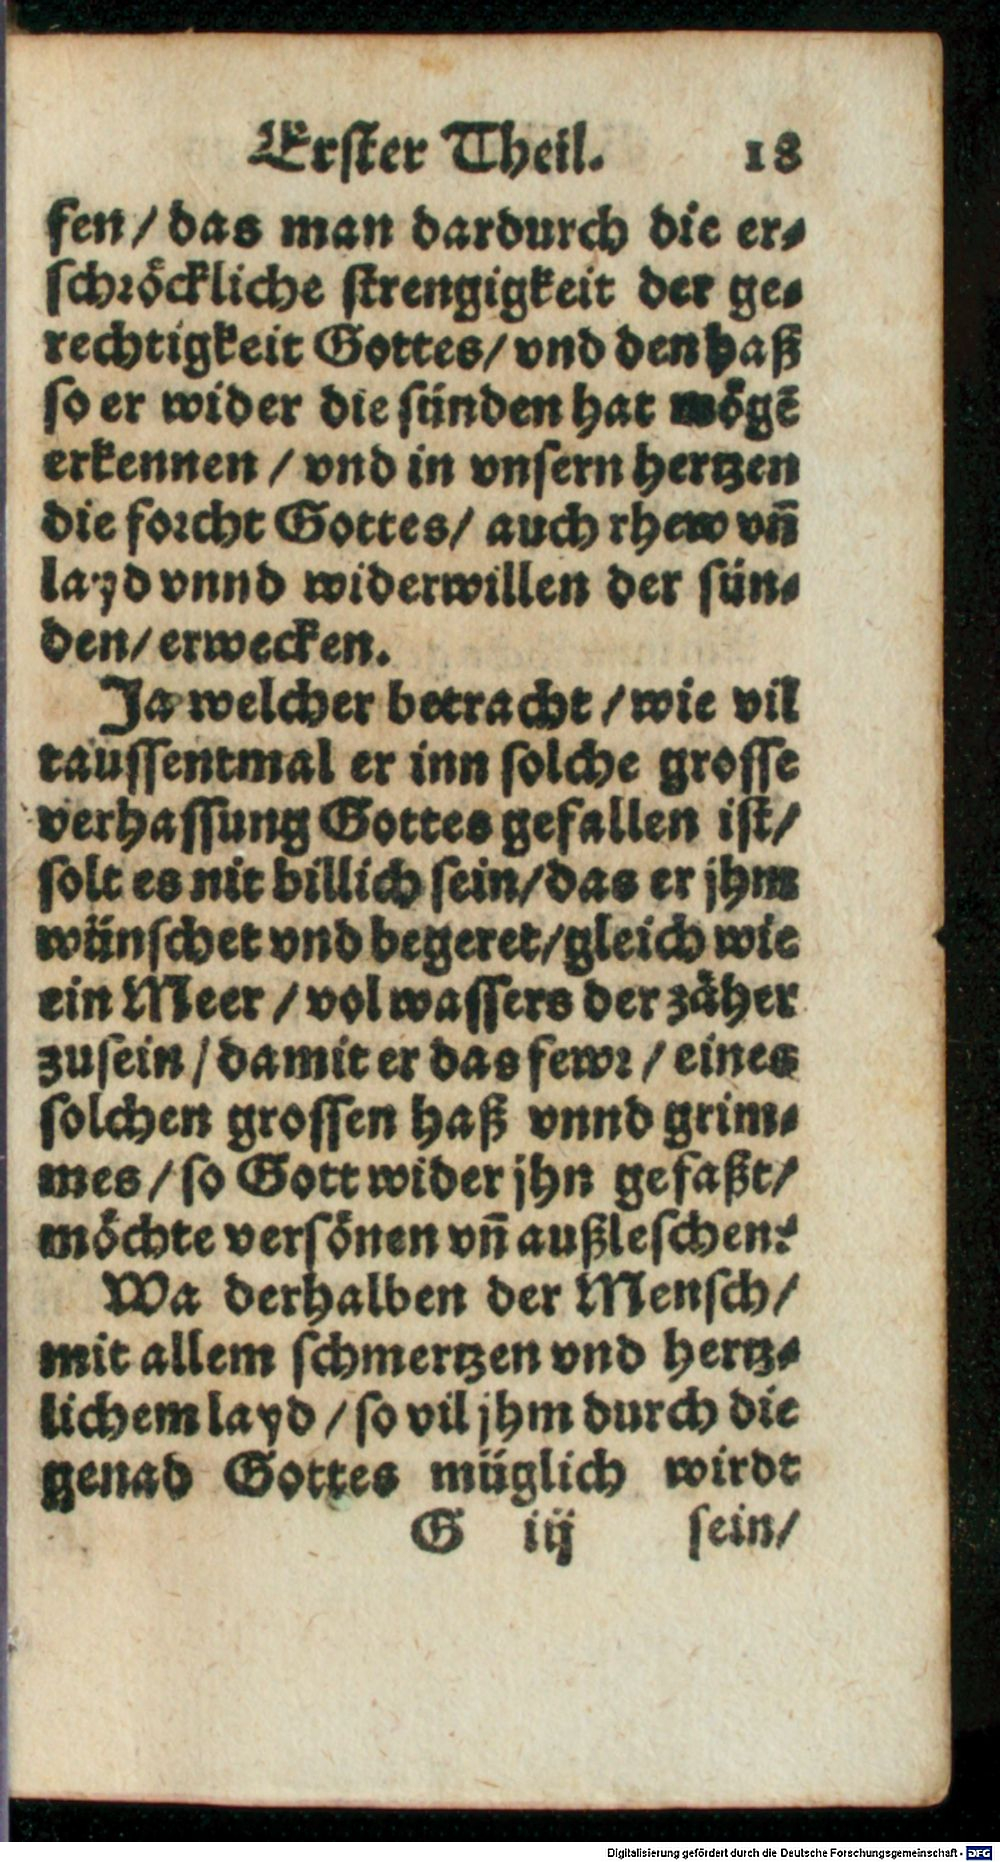 Erster Theil. 18
fen/ das man dardurch die er⸗
schröckliche strengigkeit der ge⸗
rechtigkeit Gottes/ vnd den haß
so er wider die sünden hat mögē
erkennen / vnd in vnsern hertzen
die forcht Gottes/ auch rhew vn̄
layd vnnd widerwillen der sün⸗
den/ erwecken.
Ja welcher betracht / wie vil
taussentmal er inn solche grosse
verhassung Gottes gefallen ist/
solt es nit billich sein/ das er jhm
wünschet vnd begeret/ gleich wie
ein Meer / vol wassers der zäher
zusein / damit er das fewr / eines
solchen grossen haß vnnd grim⸗
mes / so Gott wider jhn gefaßt/
möchte versönen vn̄ außleschen?
Wa derhalben der Mensch/
mit allem schmertzen vnd hertz⸗
lichem layd / so vil jhm durch die
genad Gottes müglich wirdt
G iij sein/
Digitalisierung gefördert durch die Deutsche Forschungsgemeinschaft - DFG